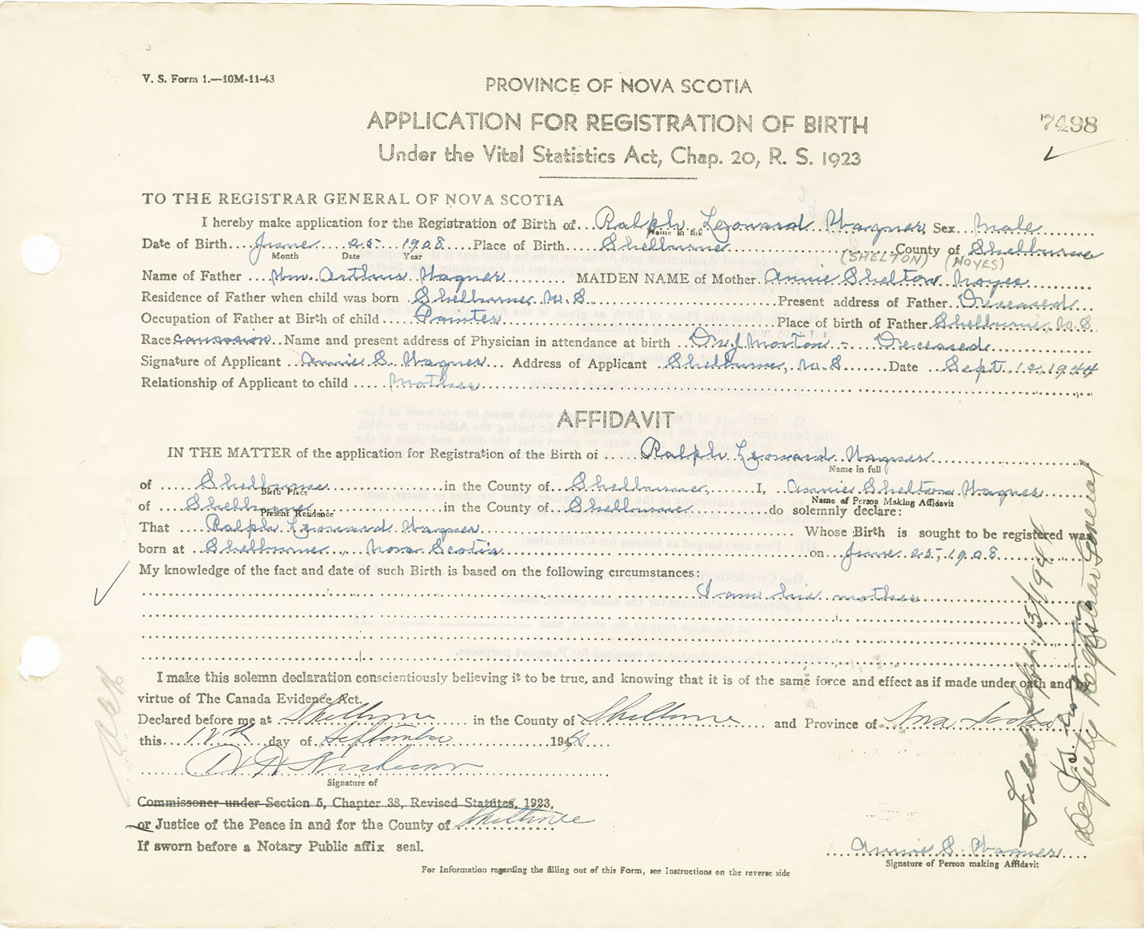 V. S. Form 1.—10M-11-43
PROVINCE OF NOVA SCOTIA
APPLICATION FOR REGISTRATION OF BIRTH
7498
Under the Vital Statistics Act, Chap. 20, R. S. 1923
TO THE REGISTRAR GENERAL OF NOVA SCOTIA
I hereby make application for the Registration of Birth of Ralph Leonard Wagner Sex Male
Name in full
Date of Birth June 25 1908 Place of Birth Shelburne County of Shelburne
Month Date Year
(SHELTON) (NOYES)
Name of Father Wm. Arthur Wagner MAIDEN NAME of Mother Annie Shelton Noyes
Residence of Father when child was born Shelburne N.S. Present address of Father Deceased
Occupation of Father at Birth of child Painter Place of birth of Father Shelburne, N.S.
Race Name and present address of Physician in attendance at birth Dr. J Morton - Deceased
Signature of Applicant Annie S. Wagner Address of Applicant Shelburne, N.S. Date Sept. 12, 1944
Relationship of Applicant to child Mother
AFFIDAVIT
IN THE MATTER of the application for Registration of the Birth of Ralph Leonard Wagner
Name in full
of Shelburne in the County of Shelburne, I, Annie Shelton Wagner
Birth Place Name of Person Making Affidavit
of Shelburne in the County of Shelburne do solemnly declare:
Present Residence
That Ralph Leonard Wagner Whose Birth is sought to be registered was
born at Shelburne, Nova Scotia on June 25, 1908
My knowledge of the fact and date of such Birth is based on the following circumstances:
I am his mother
I make this solemn declaration conscientiously believing it to be true, and knowing that it is of the same force and effect as if made under oath and by
virtue of The Canada Evidence Act.
Declared before me at Shelburne in the County of Shelburne and Province of Nova Scotia
this 12th day of September 1944
Signature of
Commissoner under Section 5, Chapter 38, Revised Statutes, 1923,
or Justice of the Peace in and for the County of Shelburne
If sworn before a Notary Public affix seal.
Annie S. Wagner
Signature of Person making Affidavit
For Information regarding the filling out of this Form, see Instructions on the reverse side
Filed Sept. 13/194
Deputy Registrar General